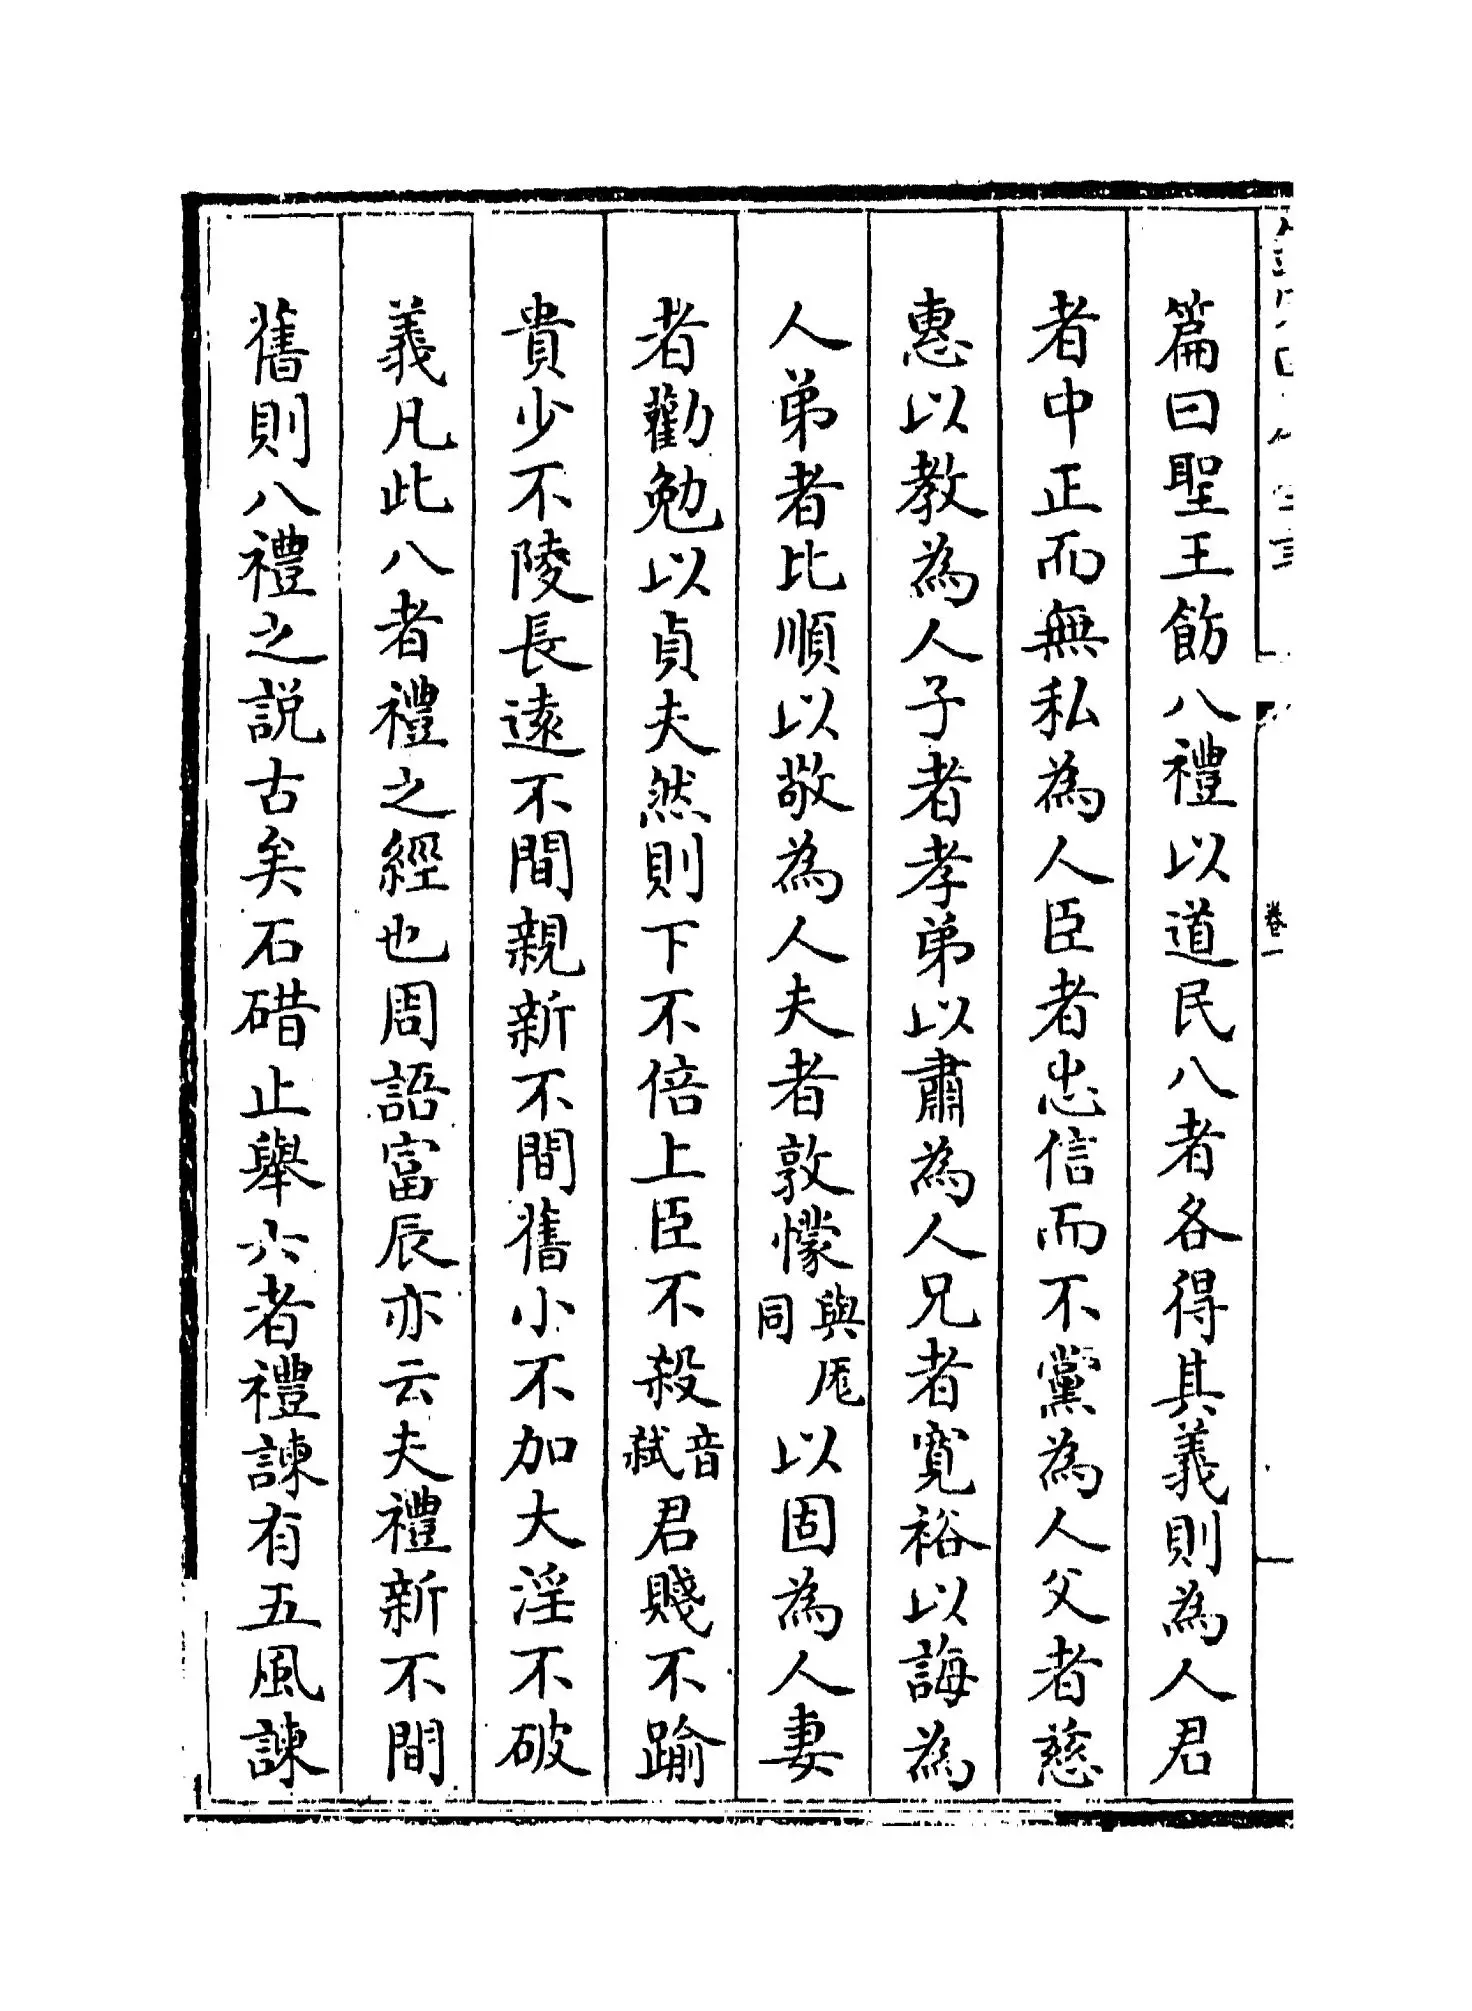 篇曰聖王飭八禮以道民八者各得其義則為人君
者中正而無私為人臣者忠信而不黨為人父者慈
惠以教為人子者孝弟以肅為人兄者寬裕以誨為
人弟者比順以敬為人夫者敦懞與厖同以固為人妻
者勸勉以貞夫然則下不倍上臣不殺音弑君賤不踰
貴少不陵長遠不間親新不間舊小不加大淫不破
義凡此八者禮之經也周語富辰亦云夫禮新不間
舊則八禮之說古矣石碏止舉六者禮諫有五風諫
卷一